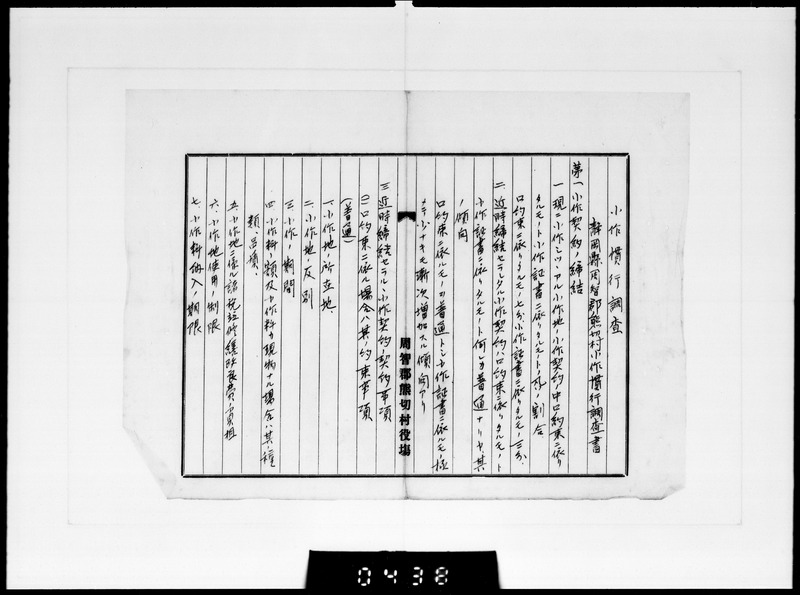 小作慣行調査
静岡縣周智郡熊切村小作慣行調査書
第一 小作契約ノ締結
一 現ニ小作シツヽアル小作地ノ小作契約ノ中口約束ニ依リ
タルモノト小作証書ニ依リタルモノトノ割合
口約束ニ依リタルモノ七分、小作証書ニ依リタルモノ三分、
二、近時締結セラレタル小作契約ハ口約束ニ依リタルモノト
小作証書ニ依リタルモノト何レカ普通ナリヤ、其
ノ傾向
口約束ニ依ルモノヲ普通トシ小作証書ニ依ルモノ極
メテ少ナキモ漸次増加スル傾向アリ
周智郡熊切村役場
三 近時締結セラルヽ小作契約ノ契約事項
(一)口約束ニ依ル場合ハ其ノ約束事項
(普通)
一、小作地ノ所在地、
二、小作地ノ反別
三、小作ノ期間
四、小作料ノ額及小作料カ現物ナル場合ハ其ノ種
類、品質、
五、小作地ニ係ル諸税並修繕改良費ノ負担
六、小作地使用ノ制限
七、小作料納入ノ期限
0438